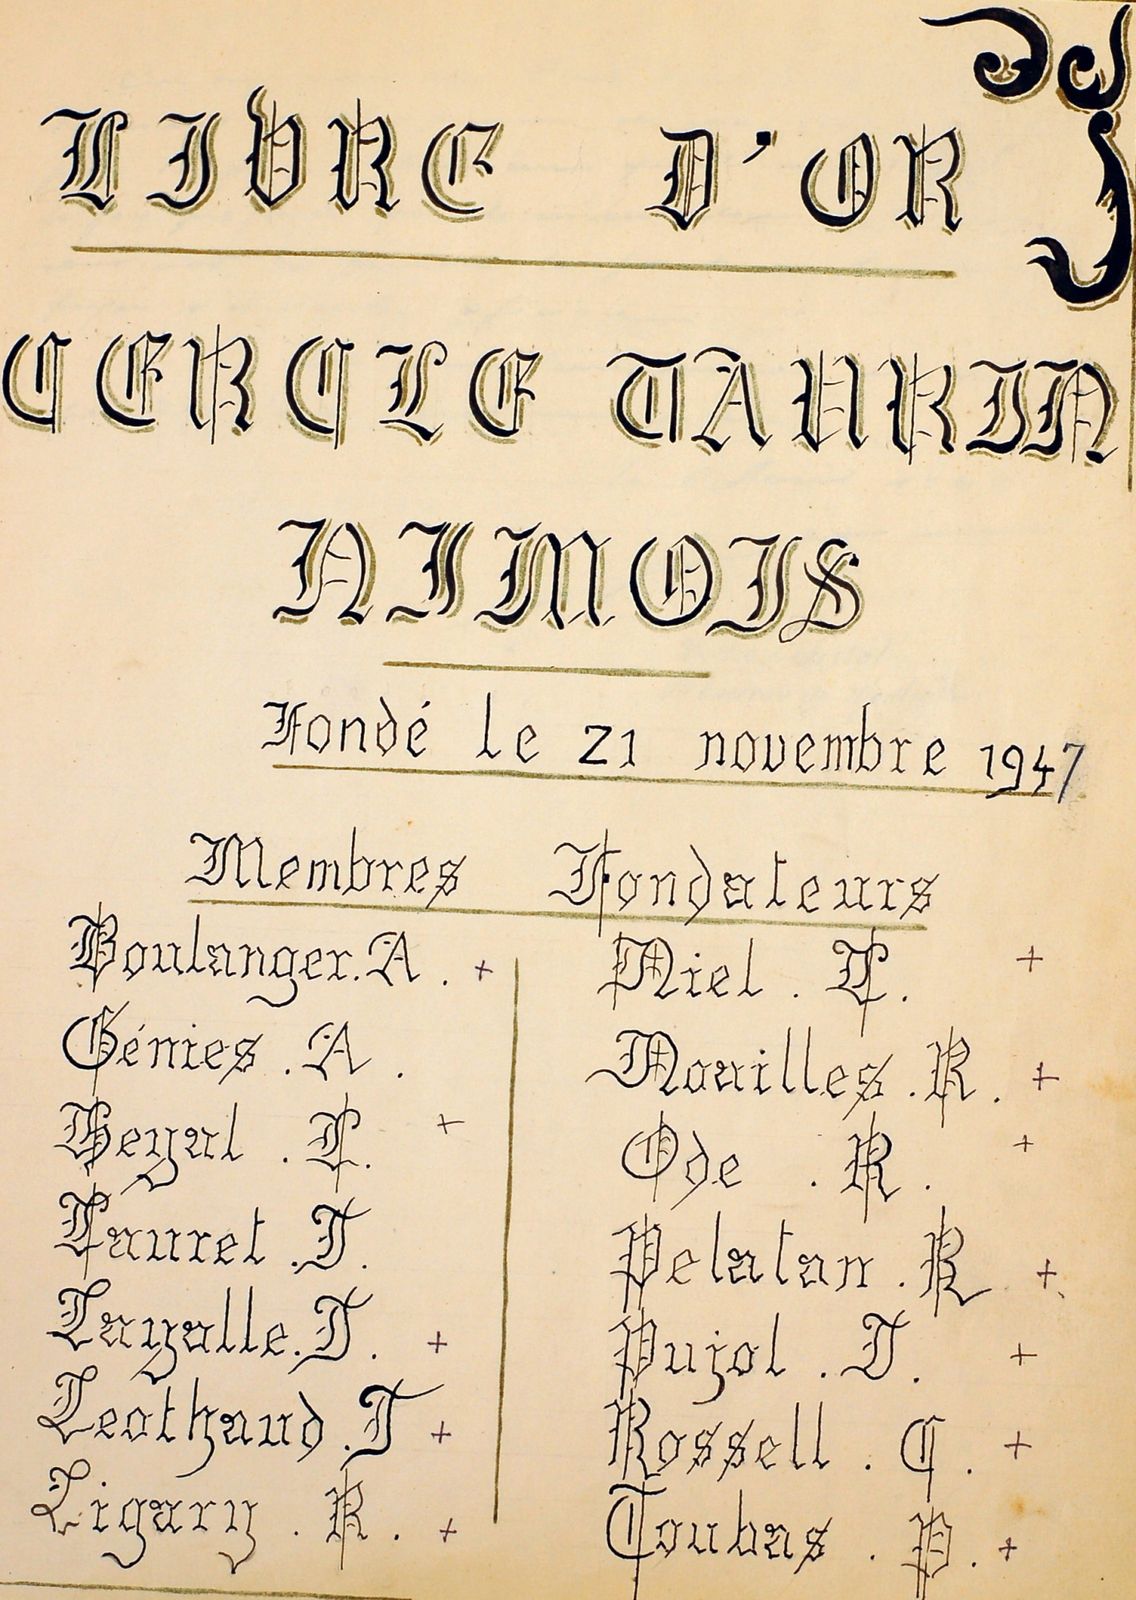 LIVRE D'OR
CERCLE TAURIN
NIMOIS
Fondé le 21 novembre 1947
Membres Fondateurs
Boulanger. A. +
Génies. A.
Heyul. +
Lauret. J.
Layalle. J. +
Leothaud. J +
Ligary. R. +
Niel. +
Nouilles. R. +
Ode. R. +
Pelatan. R +
Pujol. J. +
Rossell. C. +
Toubas. P. +